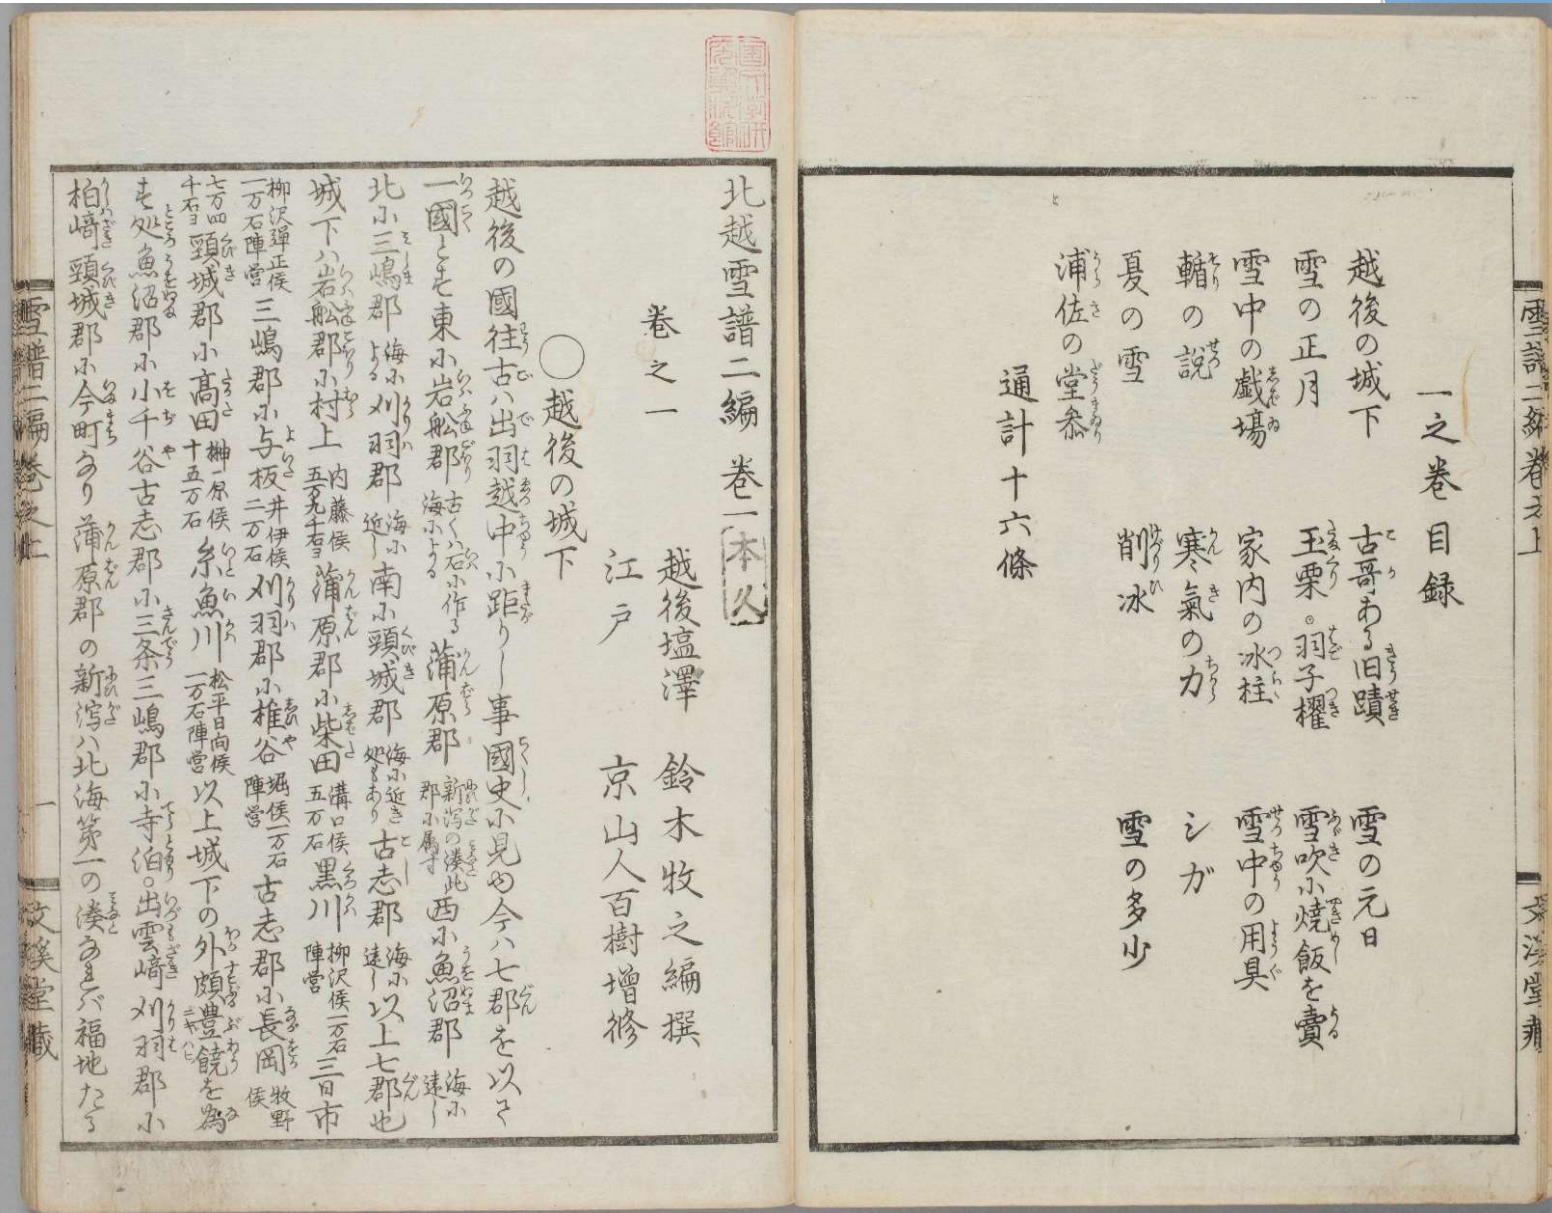 一之巻 目録
越後の城下 古哥ある旧蹟 雪の元日
雪の正月 玉栗。羽子擢 雪吹に焼飯を賣
雪中の戯場 家内の氷柱 雪中の用具
輴の説 寒氣の力 シガ
夏の雪 削氷 雪の多少
浦佐の堂叅
通計十六條
雪譜二編巻之上 文溪堂藏
北越雪譜二編 巻一
巻之一
越後塩澤 鈴木牧之編撰
江戸 京山人百樹増修
〇越後の城下
越後の國往古ハ出羽越中に距りし事國史に見ゆ今ハ七郡を以て
一國とす東に岩舩郡 古くハ石に作る海による 蒲原郡 新泻の湊此郡に属す 西に魚沼郡 海に遠し
北に三嶋郡 海による 刈羽郡 海に近し 南に頸城郡 海に近き処もあり 古志郡 海に遠し 以上七郡也
城下ハ岩舩郡に村上 内藤侯五万九千石ヨ 蒲原郡に柴田 溝口侯五万石 黒川 柳沢侯一万石陣営 三日市
柳沢弾正侯一万石陣営 三嶋郡に与板 井伊侯二万石 刈羽郡に椎谷 堀侯一万石陣営 古志郡に長岡 牧野侯
七万四千石ヨ 頸城郡に高田 榊原侯十五万石 糸魚川 松平日向侯一万石陣営 以上城下の外頗豊饒を為
す処魚沼郡に小千谷古志郡に三条三嶋郡に寺泊。出雲﨑刈羽郡に
柏﨑頸城郡に今町あり蒲原郡の新泻ハ北海第一の湊なれバ福地たる
雪譜二編巻之上 一 文溪堂藏